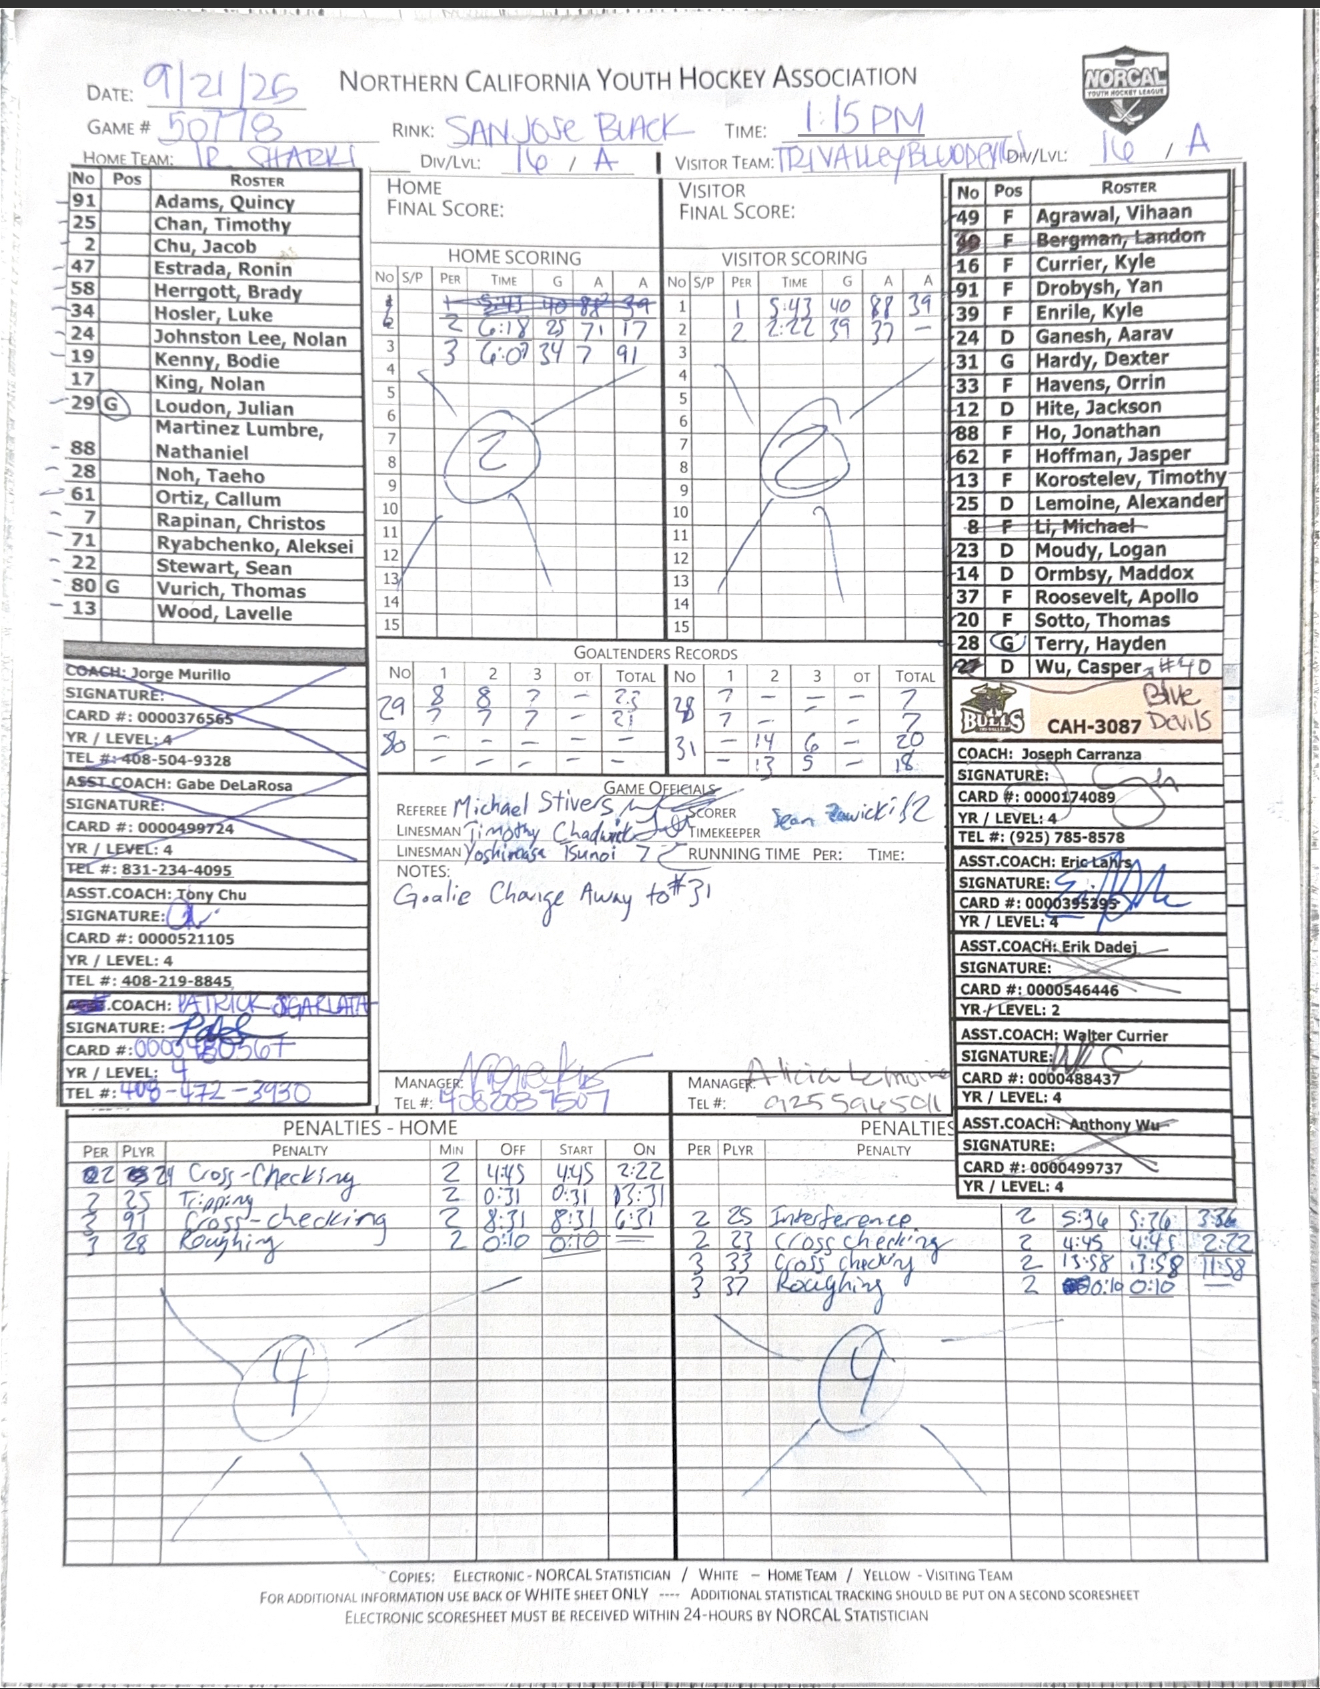 NORTHERN CALIFORNIA YOUTH HOCKEY ASSOCIATION
NORCAL
YOUTH HOCKEY LEAGUE
DATE: 9/21/25
GAME # 50778 RINK: SAN JOSE BLACK TIME: 1:15 PM
HOME TEAM: JR SHARKS DIV/LVL: 16 / A VISITOR TEAM: TRIVALLEY BLUE DEVILS DIV/LVL: 16 / A
No Pos ROSTER
91 Adams, Quincy
25 Chan, Timothy
2 Chu, Jacob
47 Estrada, Ronin
58 Herrgott, Brady
34 Hosler, Luke
24 Johnston Lee, Nolan
19 Kenny, Bodie
17 King, Nolan
29 G Loudon, Julian
Martinez Lumbre,
88 Nathaniel
28 Noh, Taeho
61 Ortiz, Callum
7 Rapinan, Christos
71 Ryabchenko, Aleksei
22 Stewart, Sean
80 G Vurich, Thomas
13 Wood, Lavelle
COACH: Jorge Murillo
SIGNATURE:
CARD #: 0000376565
YR / LEVEL: 4
TEL #: 408-504-9328
ASST.COACH: Gabe DeLaRosa
SIGNATURE:
CARD #: 0000499724
YR / LEVEL: 4
TEL #: 831-234-4095
ASST.COACH: Tony Chu
SIGNATURE:
CARD #: 0000521105
YR / LEVEL: 4
TEL #: 408-219-8845
COACH: PATRICK SGARLATA
SIGNATURE:
CARD #: 0000480567
YR / LEVEL: 4
TEL #: 408-472-3930
HOME
FINAL SCORE:
VISITOR
FINAL SCORE:
HOME SCORING
No S/P PER TIME G A A
1 1 5:43 40 88 39
2 2 6:18 25 71 17
3 3 6:07 34 7 91
4
5
6
7
8
9
10
11
12
13
14
15
2
VISITOR SCORING
No S/P PER TIME G A A
1 1 5:43 40 88 39
2 2 2:22 39 37 -
3
4
5
6
7
8
9
10
11
12
13
14
15
2
GOALTENDERS RECORDS
No 1 2 3 OT TOTAL No 1 2 3 OT TOTAL
29 8 8 7 - 23 28 7 - - - 7
7 7 7 - 21 7 - - - 7
80 - - - - - 31 - 14 6 - 20
- - - - - 13 5 18
GAME OFFICIALS
REFEREE Michael Stivers SCORER Sean Zawicki
LINESMAN Timothy Chadwick TIMEKEEPER
LINESMAN Yoshimasa Tsunoi RUNNING TIME PER: TIME:
NOTES:
Goalie Change Away to #31
MANAGER:
TEL #: 4082037507
MANAGER: Alicia Lemoine
TEL # 9255965011
No Pos ROSTER
49 F Agrawal, Vihaan
F Bergman, Landon
16 F Currier, Kyle
91 F Drobysh, Yan
39 F Enrile, Kyle
24 D Ganesh, Aarav
31 G Hardy, Dexter
33 F Havens, Orrin
12 D Hite, Jackson
88 F Ho, Jonathan
62 F Hoffman, Jasper
13 F Korostelev, Timothy
25 D Lemoine, Alexander
8 F Li, Michael
23 D Moudy, Logan
14 D Ormbsy, Maddox
37 F Roosevelt, Apollo
20 F Sotto, Thomas
28 G Terry, Hayden
27 D Wu, Casper #40
BULLS
CAH-3087 Blue Devils
COACH: Joseph Carranza
SIGNATURE:
CARD #: 0000174089
YR / LEVEL: 4
TEL #: (925) 785-8578
ASST.COACH: Eric Lahrs
SIGNATURE:
CARD #: 0000395395
YR / LEVEL: 4
ASST.COACH: Erik Dadej
SIGNATURE:
CARD #: 0000546446
YR / LEVEL: 2
ASST.COACH: Walter Currier
SIGNATURE:
CARD #: 0000488437
YR / LEVEL: 4
ASST.COACH: Anthony Wu
SIGNATURE:
CARD #: 0000499737
YR / LEVEL: 4
PENALTIES - HOME
PER PLYR PENALTY MIN OFF START ON
2 24 Cross-Checking 2 4:45 4:45 2:22
2 25 Tripping 2 0:31 0:31 13:31
3 91 Cross-checking 2 8:31 8:31 6:31
3 28 Roughing 2 0:10 0:10 —
4
PENALTIES
PER PLYR PENALTY
2 25 Interference 2 5:36 5:36 3:36
2 23 Cross checking 2 4:45 4:45 2:22
3 33 Cross checking 2 13:58 13:58 11:58
3 37 Roughing 2 0:10 0:10 —
4
COPIES: ELECTRONIC - NORCAL STATISTICIAN / WHITE – HOME TEAM / YELLOW - VISITING TEAM
FOR ADDITIONAL INFORMATION USE BACK OF WHITE SHEET ONLY ---- ADDITIONAL STATISTICAL TRACKING SHOULD BE PUT ON A SECOND SCORESHEET
ELECTRONIC SCORESHEET MUST BE RECEIVED WITHIN 24-HOURS BY NORCAL STATISTICIAN